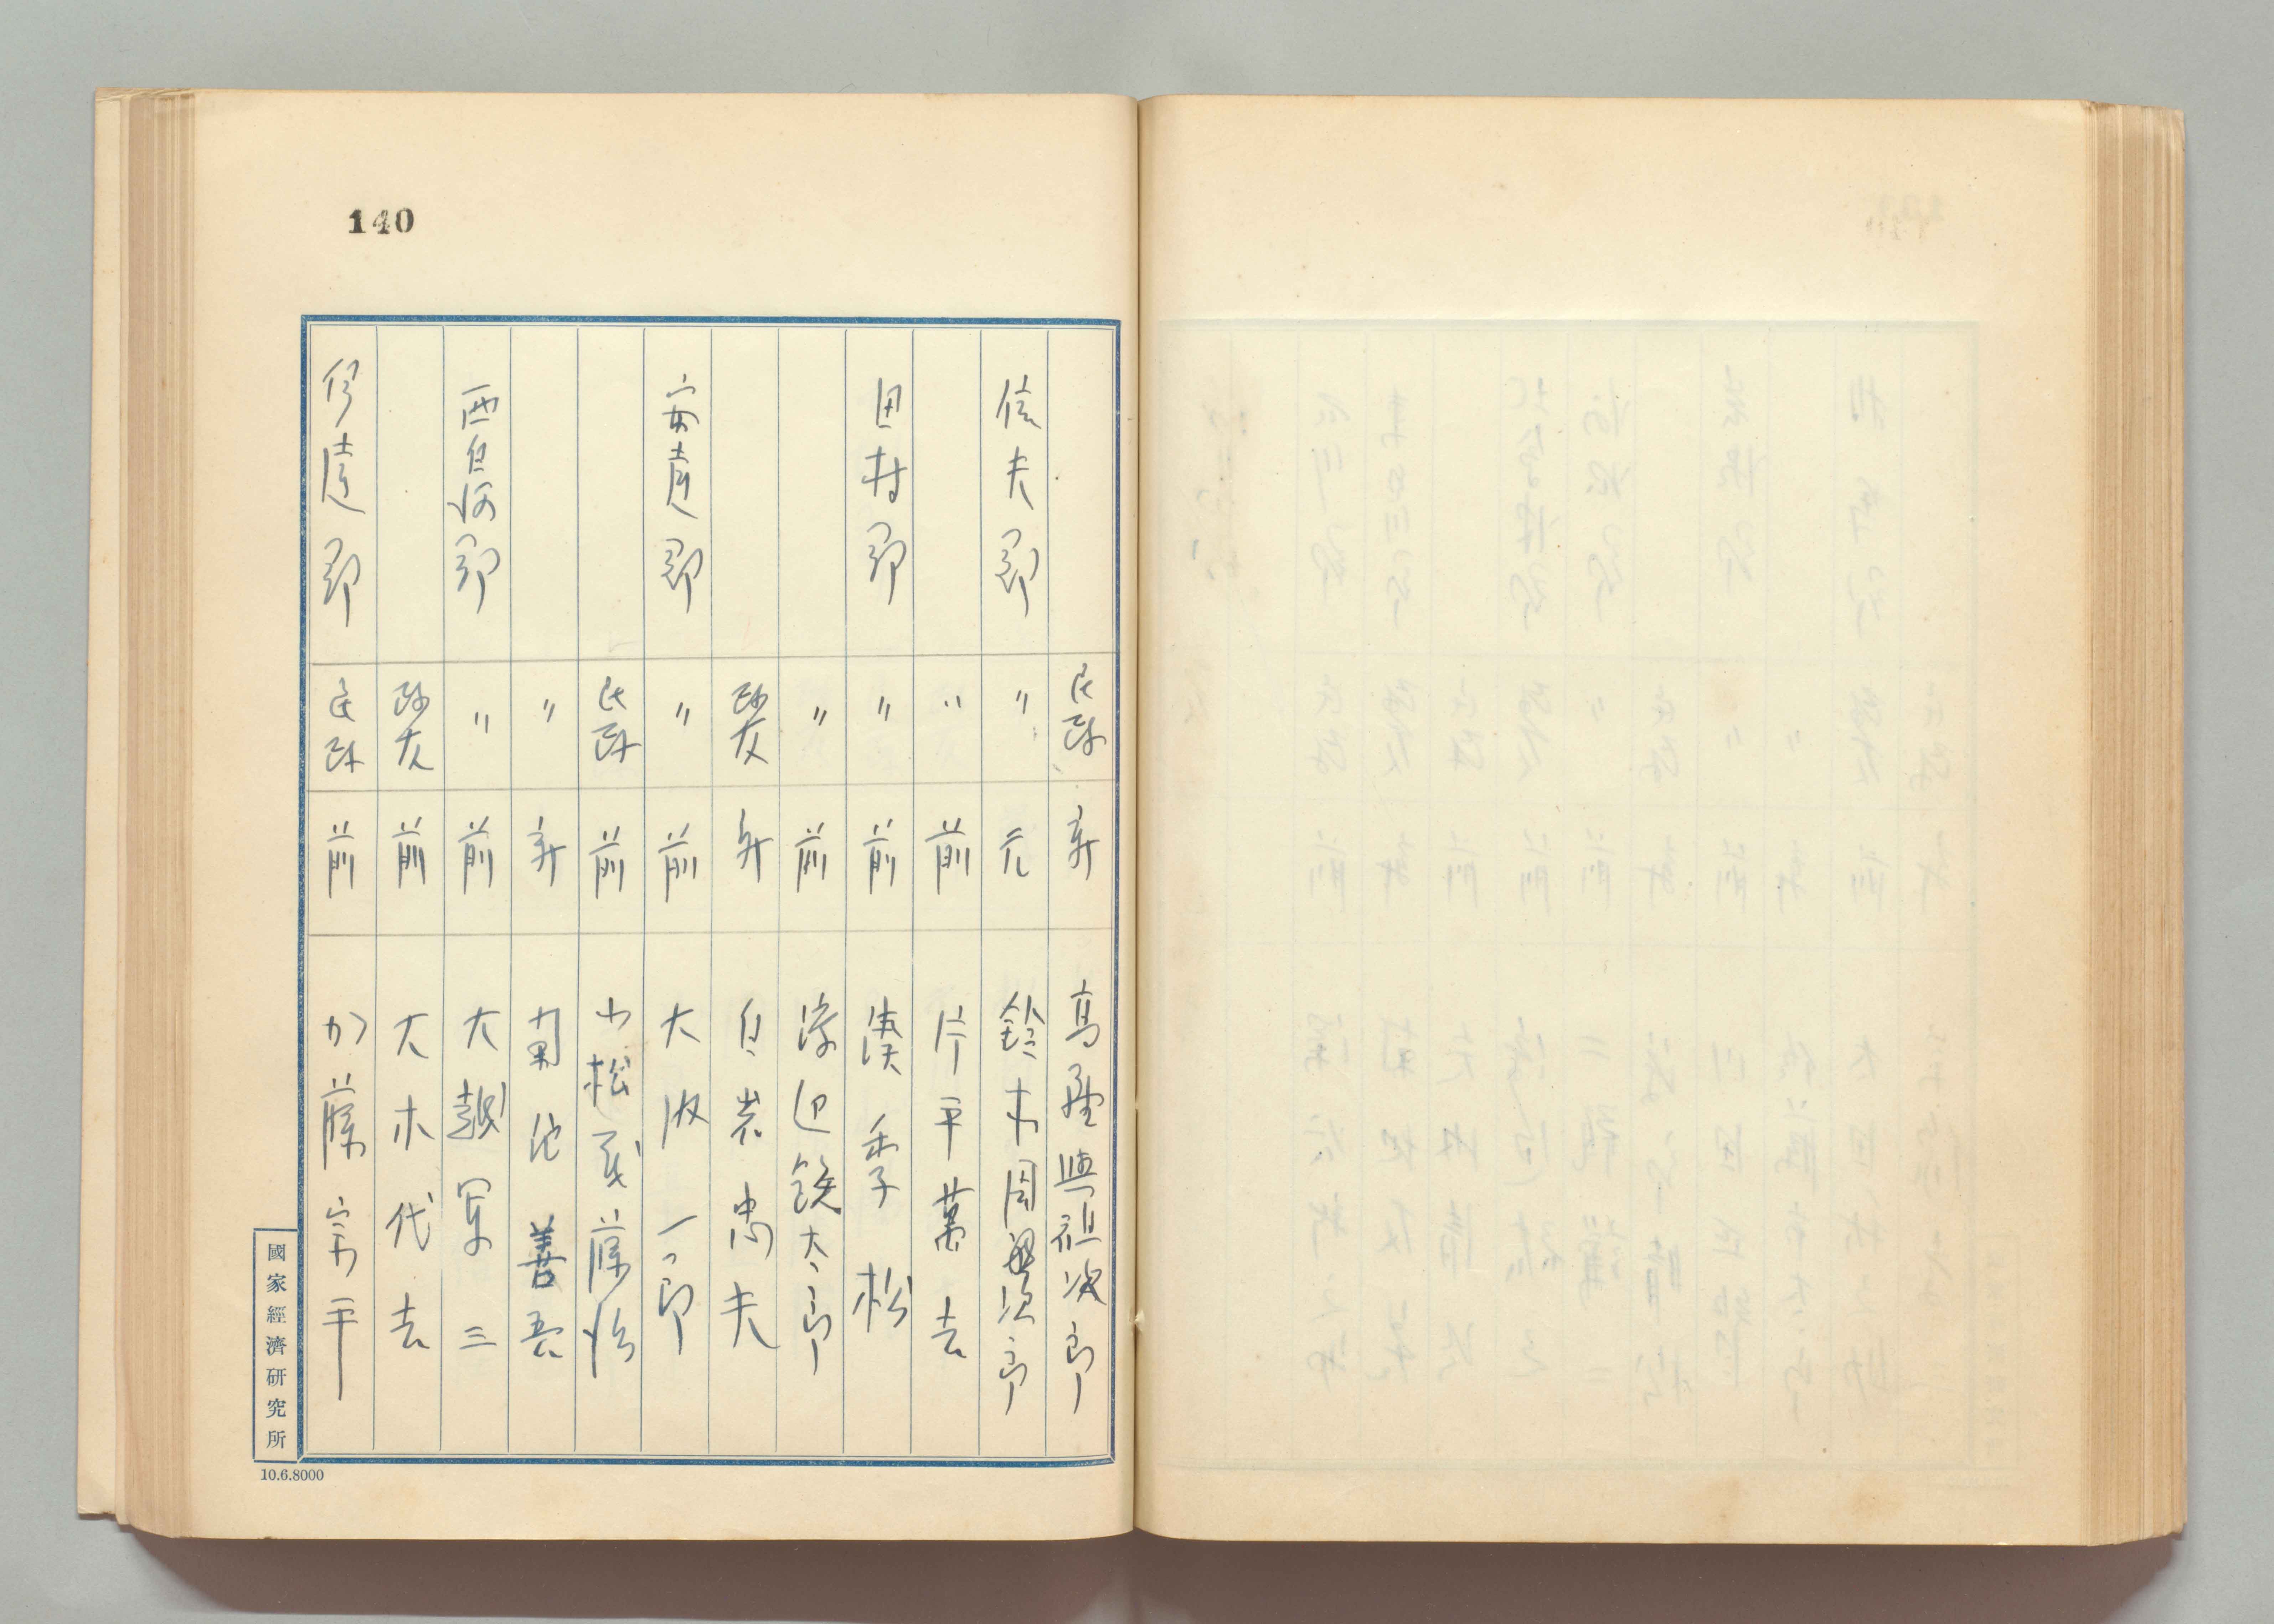 140
民政 新 高 興祖次郎
信夫郡 〃 元 鈴木周盤次郎
〃 前 片平萬吉
田村郡 〃 前 湊 季松
〃 前 渡辺鉄太郎
政友 新 白岩忠夫
安達郡 〃 前 大波一郎
民政 前 小松茂藤治
〃 新 菊地善吾
西白河郡 〃 前 大越軍三
政友 前 大木代吉
伊達郡 民政 前 加藤宗平
國家經濟研究所
10.6.8000